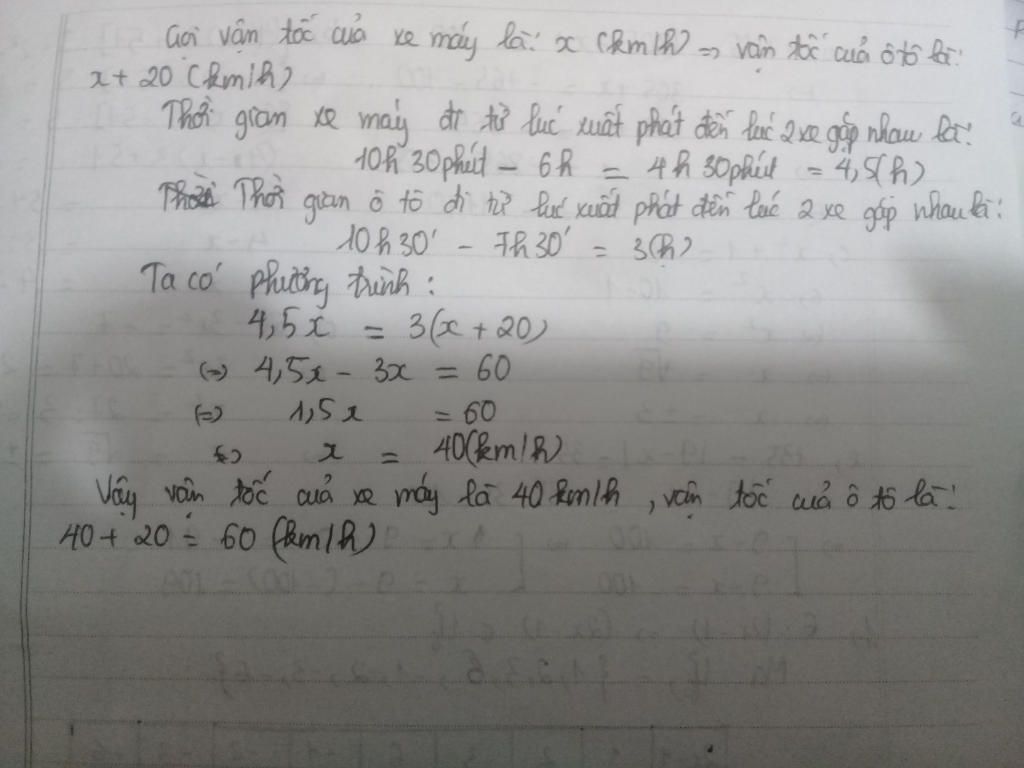 Gọi vận tốc của xe máy là: x (km/h) => vận tốc của ô tô là:
x + 20 (km/h)
Thời gian xe máy đi từ lúc xuất phát đến lúc 2 xe gặp nhau là:
10h 30phút - 6h = 4h 30phút = 4,5(h)
Thời gian ô tô đi từ lúc xuất phát đến lúc 2 xe gặp nhau là:
10h30' - 7h30' = 3(h)
Ta có phương trình:
4,5x = 3(x + 20)
<=> 4,5x - 3x = 60
<=> 1,5x = 60
<=> x = 40(km/h)
Vậy vận tốc của xe máy là 40km/h, vận tốc của ô tô là:
40 + 20 = 60 (km/h)